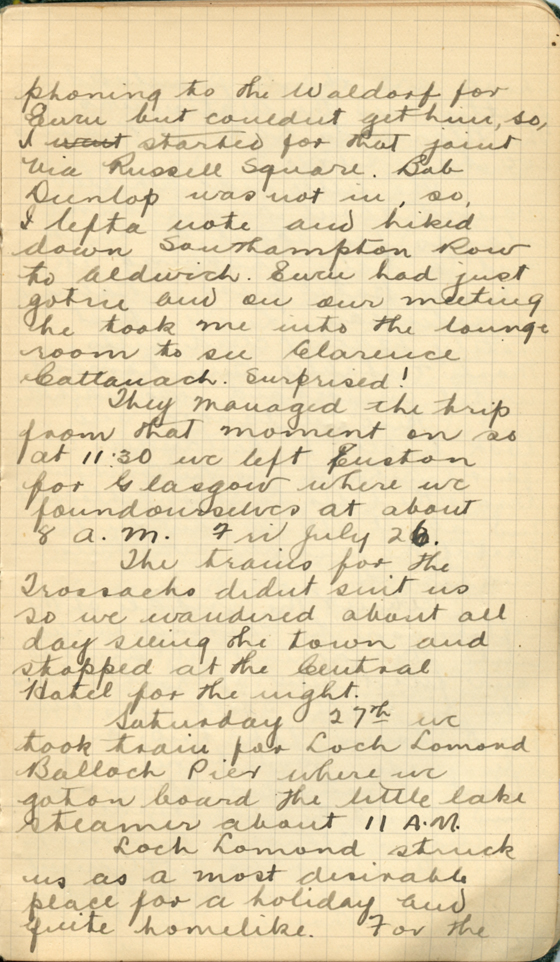 phoning to the Waldorf for
Ewen but couldnt get him, so,
I went started for that joint
via Russell Square. Bob
Dunlop was not in, so,
I left a note and hiked
down Southampton Row
to Aldwich. Ewen had just
got in and on our meeting
he took me into the lounge
room to see Clarence
Cattanach. Surprised!
They managed the trip
from that moment on so
at 11:30 we left Euston
for Glasgow where we
found ourselves at about
8 a.m. Fri July 26.
The trains for the
Trossachs didnt suit us
so we wandered about all
day seeing the town and
stopped at the Central
Hotel for the night.
Saturday 27th we
took train for Loch Lomond
Balloch Pier where we
got on board the little lake
steamer about 11 A.M.
Loch Lomond struck
us as a most desirable
place for a holiday and
quite homelike. For the